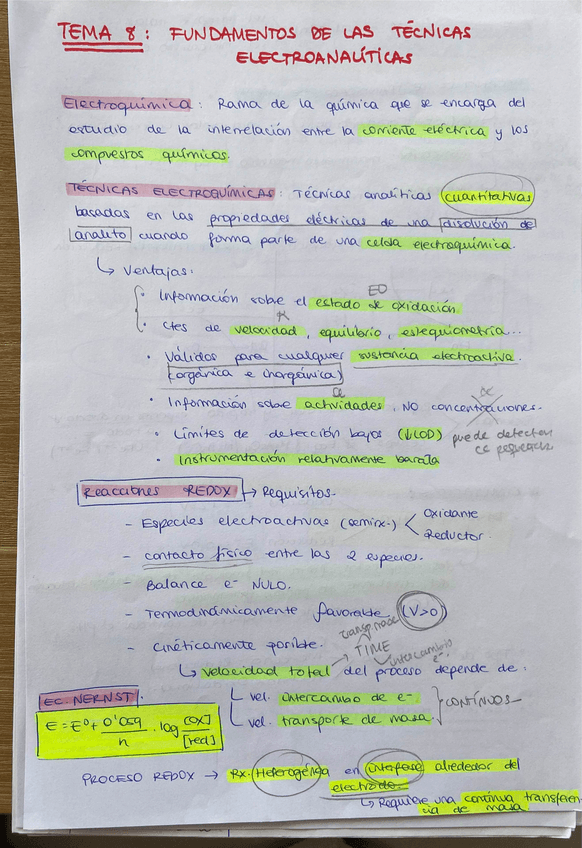 TEMA 8: FUNDAMENTOS DE LAS TÉCNICAS
ELECTROANALÍTICAS
Electroquímica: Rama de la química que se encarga del
estudio de la interrelación entre la corriente eléctrica y los
compuestos químicos.
TÉCNICAS ELECTROQUÍMICAS: Técnicas analíticas cuantitativas
basadas en las propiedades eléctricas de una disolución de
analito cuando forma parte de una celda electroquímica.
↳ Ventajas:
EO
· Información sobre el estado de oxidación
K
· Ctes de velocidad, equilibrio, estequiometría...
· Válidos para cualquier sustancia electroactiva.
(orgánica e inorgánica)
· Información sobre actividades, NO concentraciones.
· Límites de detección bajos (↓LOD) puede detectar
cc pequeñas
· Instrumentación relativamente barata
Reacciones REDOX → Requisitos.
- Especies electroactivas (semirx.) < Oxidante
Reductor.
- contacto físico entre las 2 especies.
- Balance e- NULO.
- Termodinámicamente favorable (V>0)
transp. masa
- Cinéticamente posible. TIME
intercambio e-
↳ velocidad total del proceso depende de:
EC. NERNST.
vel. intercambio de e-
vel. transporte de masa. } CONTÍNUOS
E = E⁰ + 0'059/n · log [ox]/[red]
PROCESO REDOX → Rx. Heterogénea en interfase alrededor del
electrodo.
↳ Requiere una continua transferen-
cia de masa